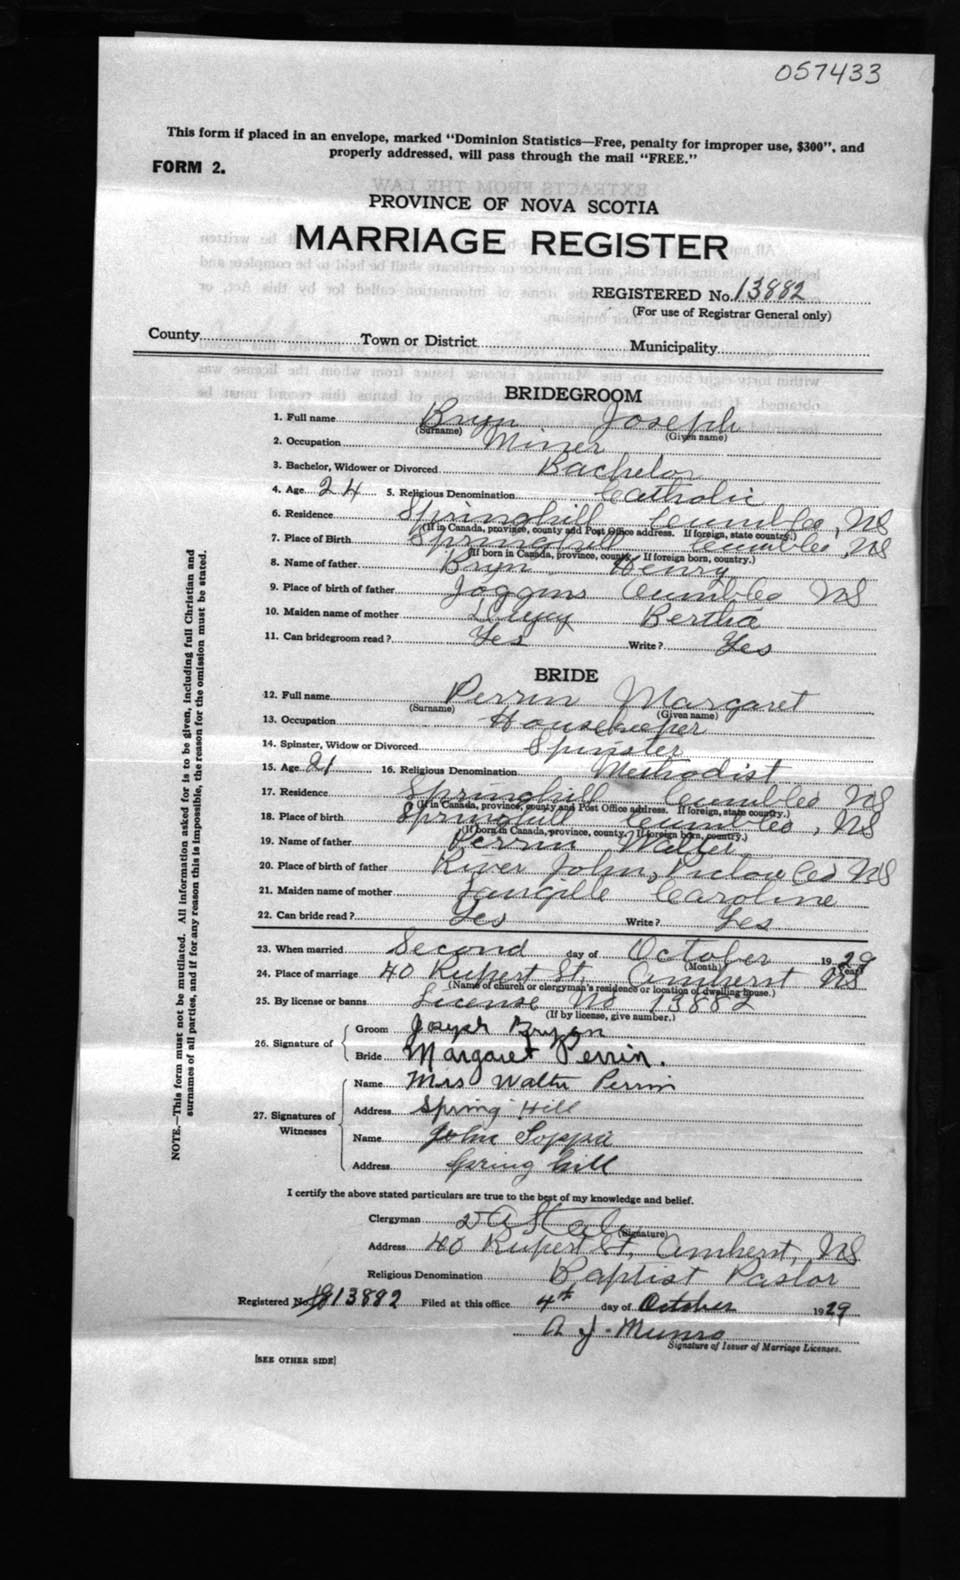 057433
This form if placed in an envelope, marked "Dominion Statistics—Free, penalty for improper use, $300", and
properly addressed, will pass through the mail "FREE."
FORM 2.
PROVINCE OF NOVA SCOTIA
MARRIAGE REGISTER
REGISTERED No. 13882
(For use of Registrar General only)
County Town or District Municipality
BRIDEGROOM
1. Full name Bryn Joseph
(Surname) (Given name)
2. Occupation Miner
3. Bachelor, Widower or Divorced Bachelor
4. Age 24 5. Religious Denomination Catholic
6. Residence Springhill Cumb Co, NS
(If in Canada, province, county and Post Office address. If foreign, state country.)
7. Place of Birth Springhill Cumb Co, NS
(If born in Canada, province, county. If foreign born, country.)
8. Name of father Bryn Henry
9. Place of birth of father Joggins Cumb Co NS
10. Maiden name of mother Bertha
11. Can bridegroom read? Yes Write? Yes
BRIDE
12. Full name Perrin Margaret
(Surname) (Given name)
13. Occupation Housekeeper
14. Spinster, Widow or Divorced Spinster
15. Age 21 16. Religious Denomination Methodist
17. Residence Springhill Cumb Co NS
(If in Canada, province, county and Post Office address. If foreign, state country.)
18. Place of birth Springhill Cumb Co, NS
(If born in Canada, province, county. If foreign born, country.)
19. Name of father Perrin Walter
20. Place of birth of father River John, Pictou Co NS
21. Maiden name of mother Caroline
22. Can bride read? Yes Write? Yes
23. When married Second day of October 1929
(Month) (Year)
24. Place of marriage 40 Rupert St. Amherst NS
(Name of church or clergyman's residence or location of dwelling house.)
25. By license or banns License No 13882
(If by license, give number.)
26. Signature of
Groom Joseph Bryon
Bride Margaret Perrin.
27. Signatures of Witnesses
Name Mrs Walter Perrin
Address Spring Hill
Name John
Address Spring hill
I certify the above stated particulars are true to the best of my knowledge and belief.
Clergyman
(Signature)
Address 40 Rupert St, Amherst, NS
Religious Denomination Baptist Pastor
Registered No. 13882 Filed at this office 4th day of October 1929
A J. Munro
Signature of Issuer of Marriage Licenses.
[SEE OTHER SIDE]
NOTE.—This form must not be mutilated. All information asked for is to be given, including full Christian and
surnames of all parties, and if for any reason this is impossible, the reason for the omission must be stated.